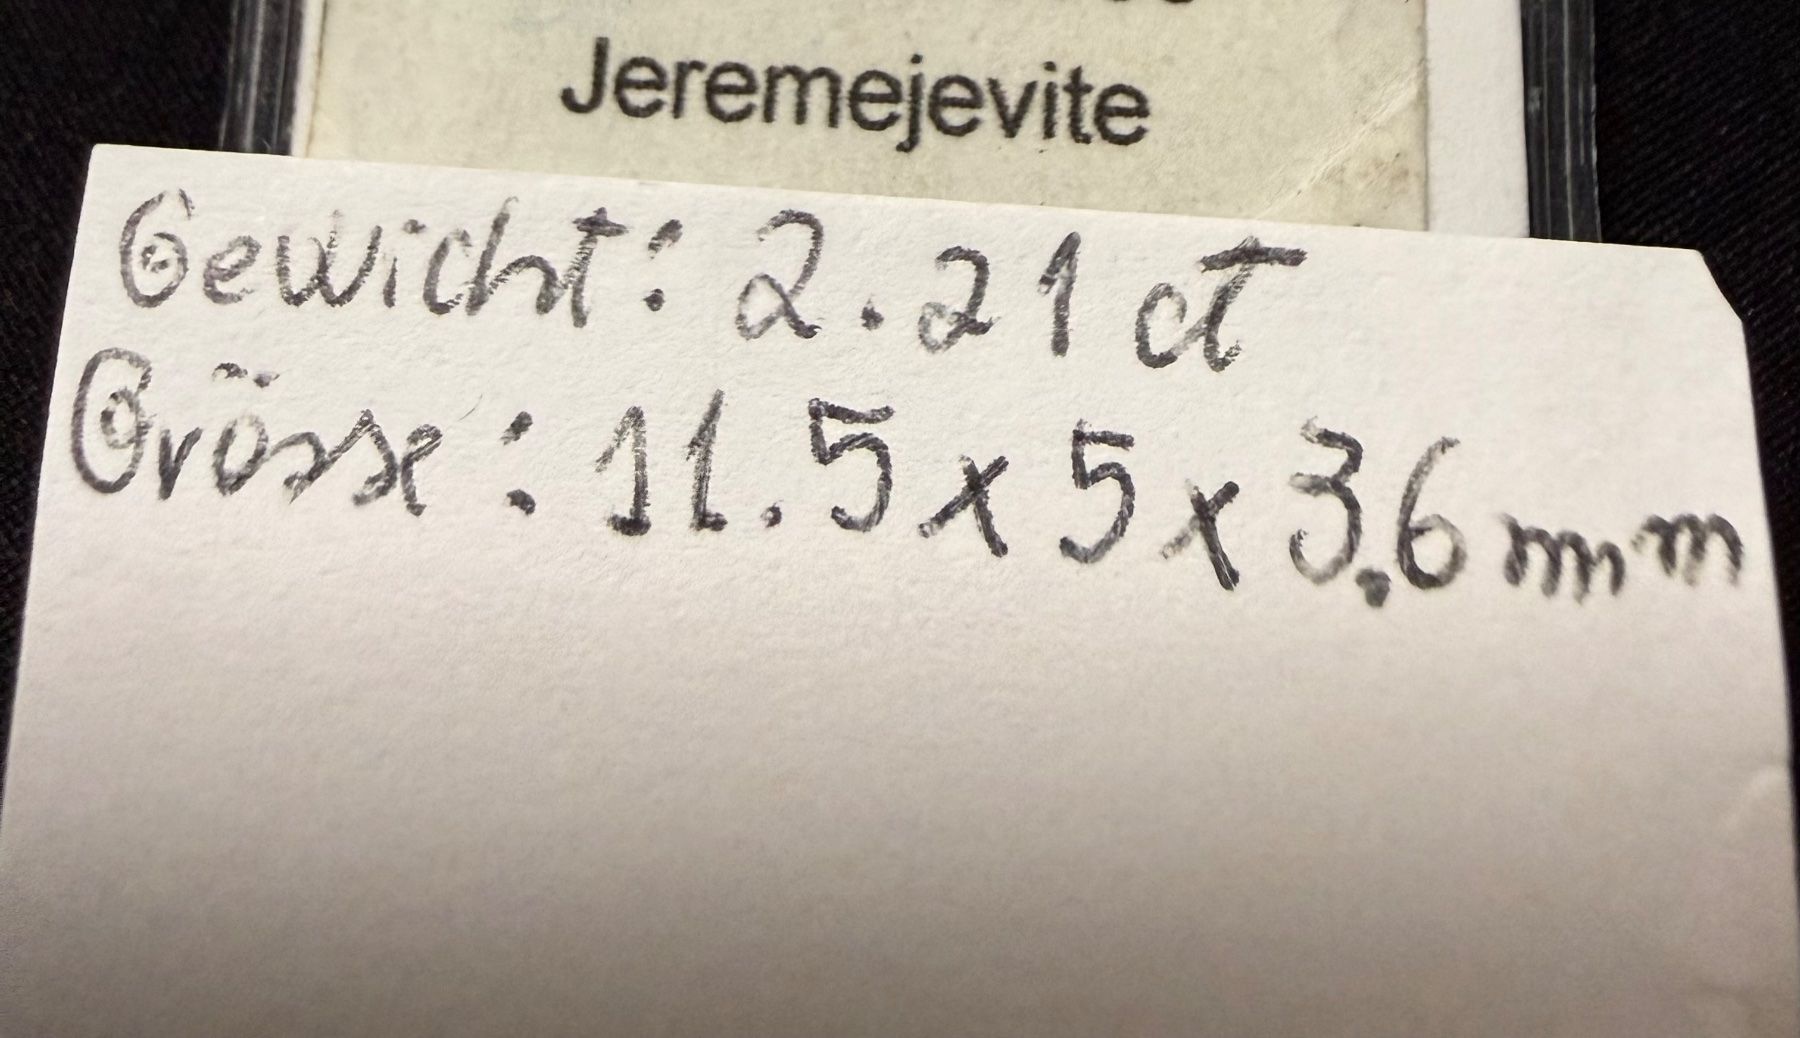 Jeremejevite
Gewicht: 2.21 ct
Grösse: 11.5 x 5 x 3.6 mm